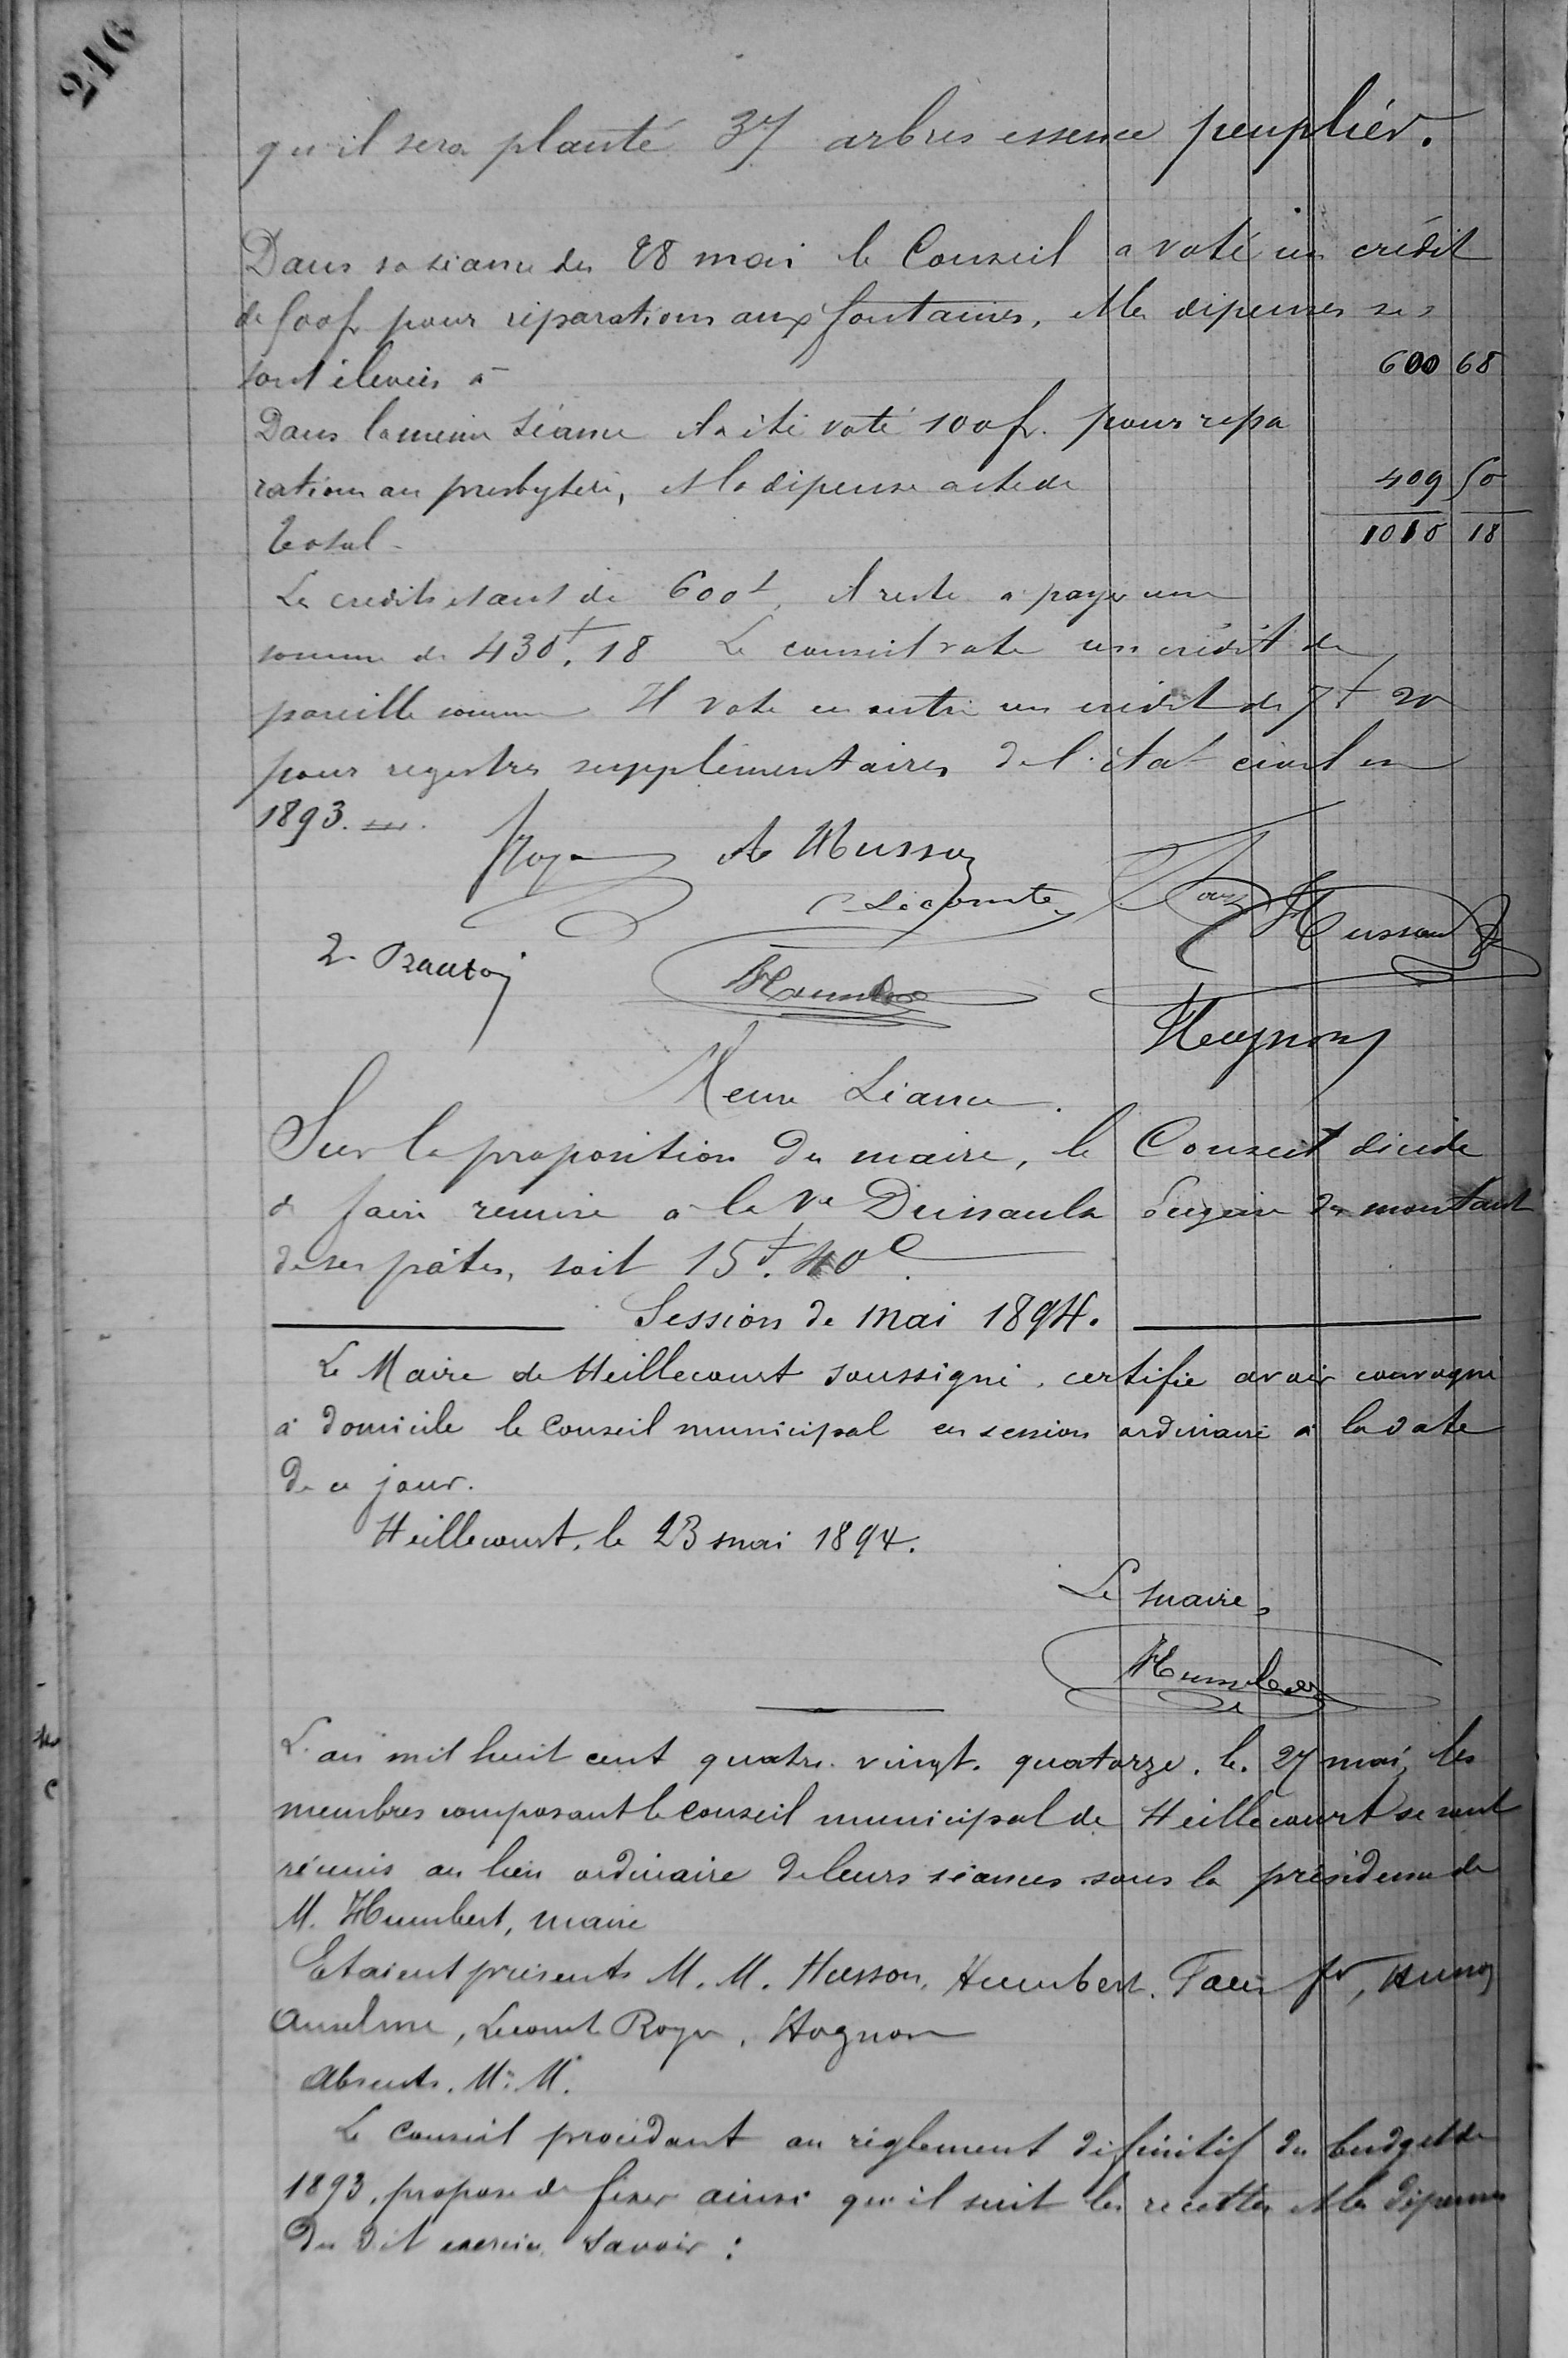 216
qu'il sera planté 37 arbres essence peuplier.
Dans sa séance du 28 mai le Conseil a voté un crédit
de 500f pour réparations aux fontaines, et les dépenses se s
sont élevées à 600 68
Dans la même séance il a été voté 100f. pour répa
rations au presbytère, et la dépense a été de 409 50
Total - 1010 18
Le crédit étant de 600f, il reste à payer une
somme de 430f. 18 Le conseil vote un crédit de
pareille somme Il vote en outre un crédit de 7f 20
pour registres supplémentaires de l'état civil en
1893.
Roger A Husson
C Lecomte
Husson
Humbert
Hognon
Même Séance.
Sur la proposition du maire, le Conseil décide
de faire remise à la Ve du montant
de ses pâtes, soit 15f. 40c
Session de Mai 1894.
Le Maire de Heillecourt soussigné, certifie avoir convoqué
à domicile le Conseil municipal en session ordinaire à la date
de ce jour.
Heillecourt, le 23 mai 1894.
Le maire,
Humbert
L'an mil huit cent quatre-vingt-quatorze, le 27 mai, les
membres composant le Conseil municipal de Heillecourt se sont
réunis au lieu ordinaire de leurs séances sous la présidence de
M. Humbert, maire
Etaient présents M. M. Husson, Humbert,
Anselme, Lecomte Roger, Hognon
Absents, M. M.
Le Conseil procédant au règlement définitif du budget de
1893, propose de fixer ainsi qu'il suit les recettes et les dépenses
du dit exercice savoir :